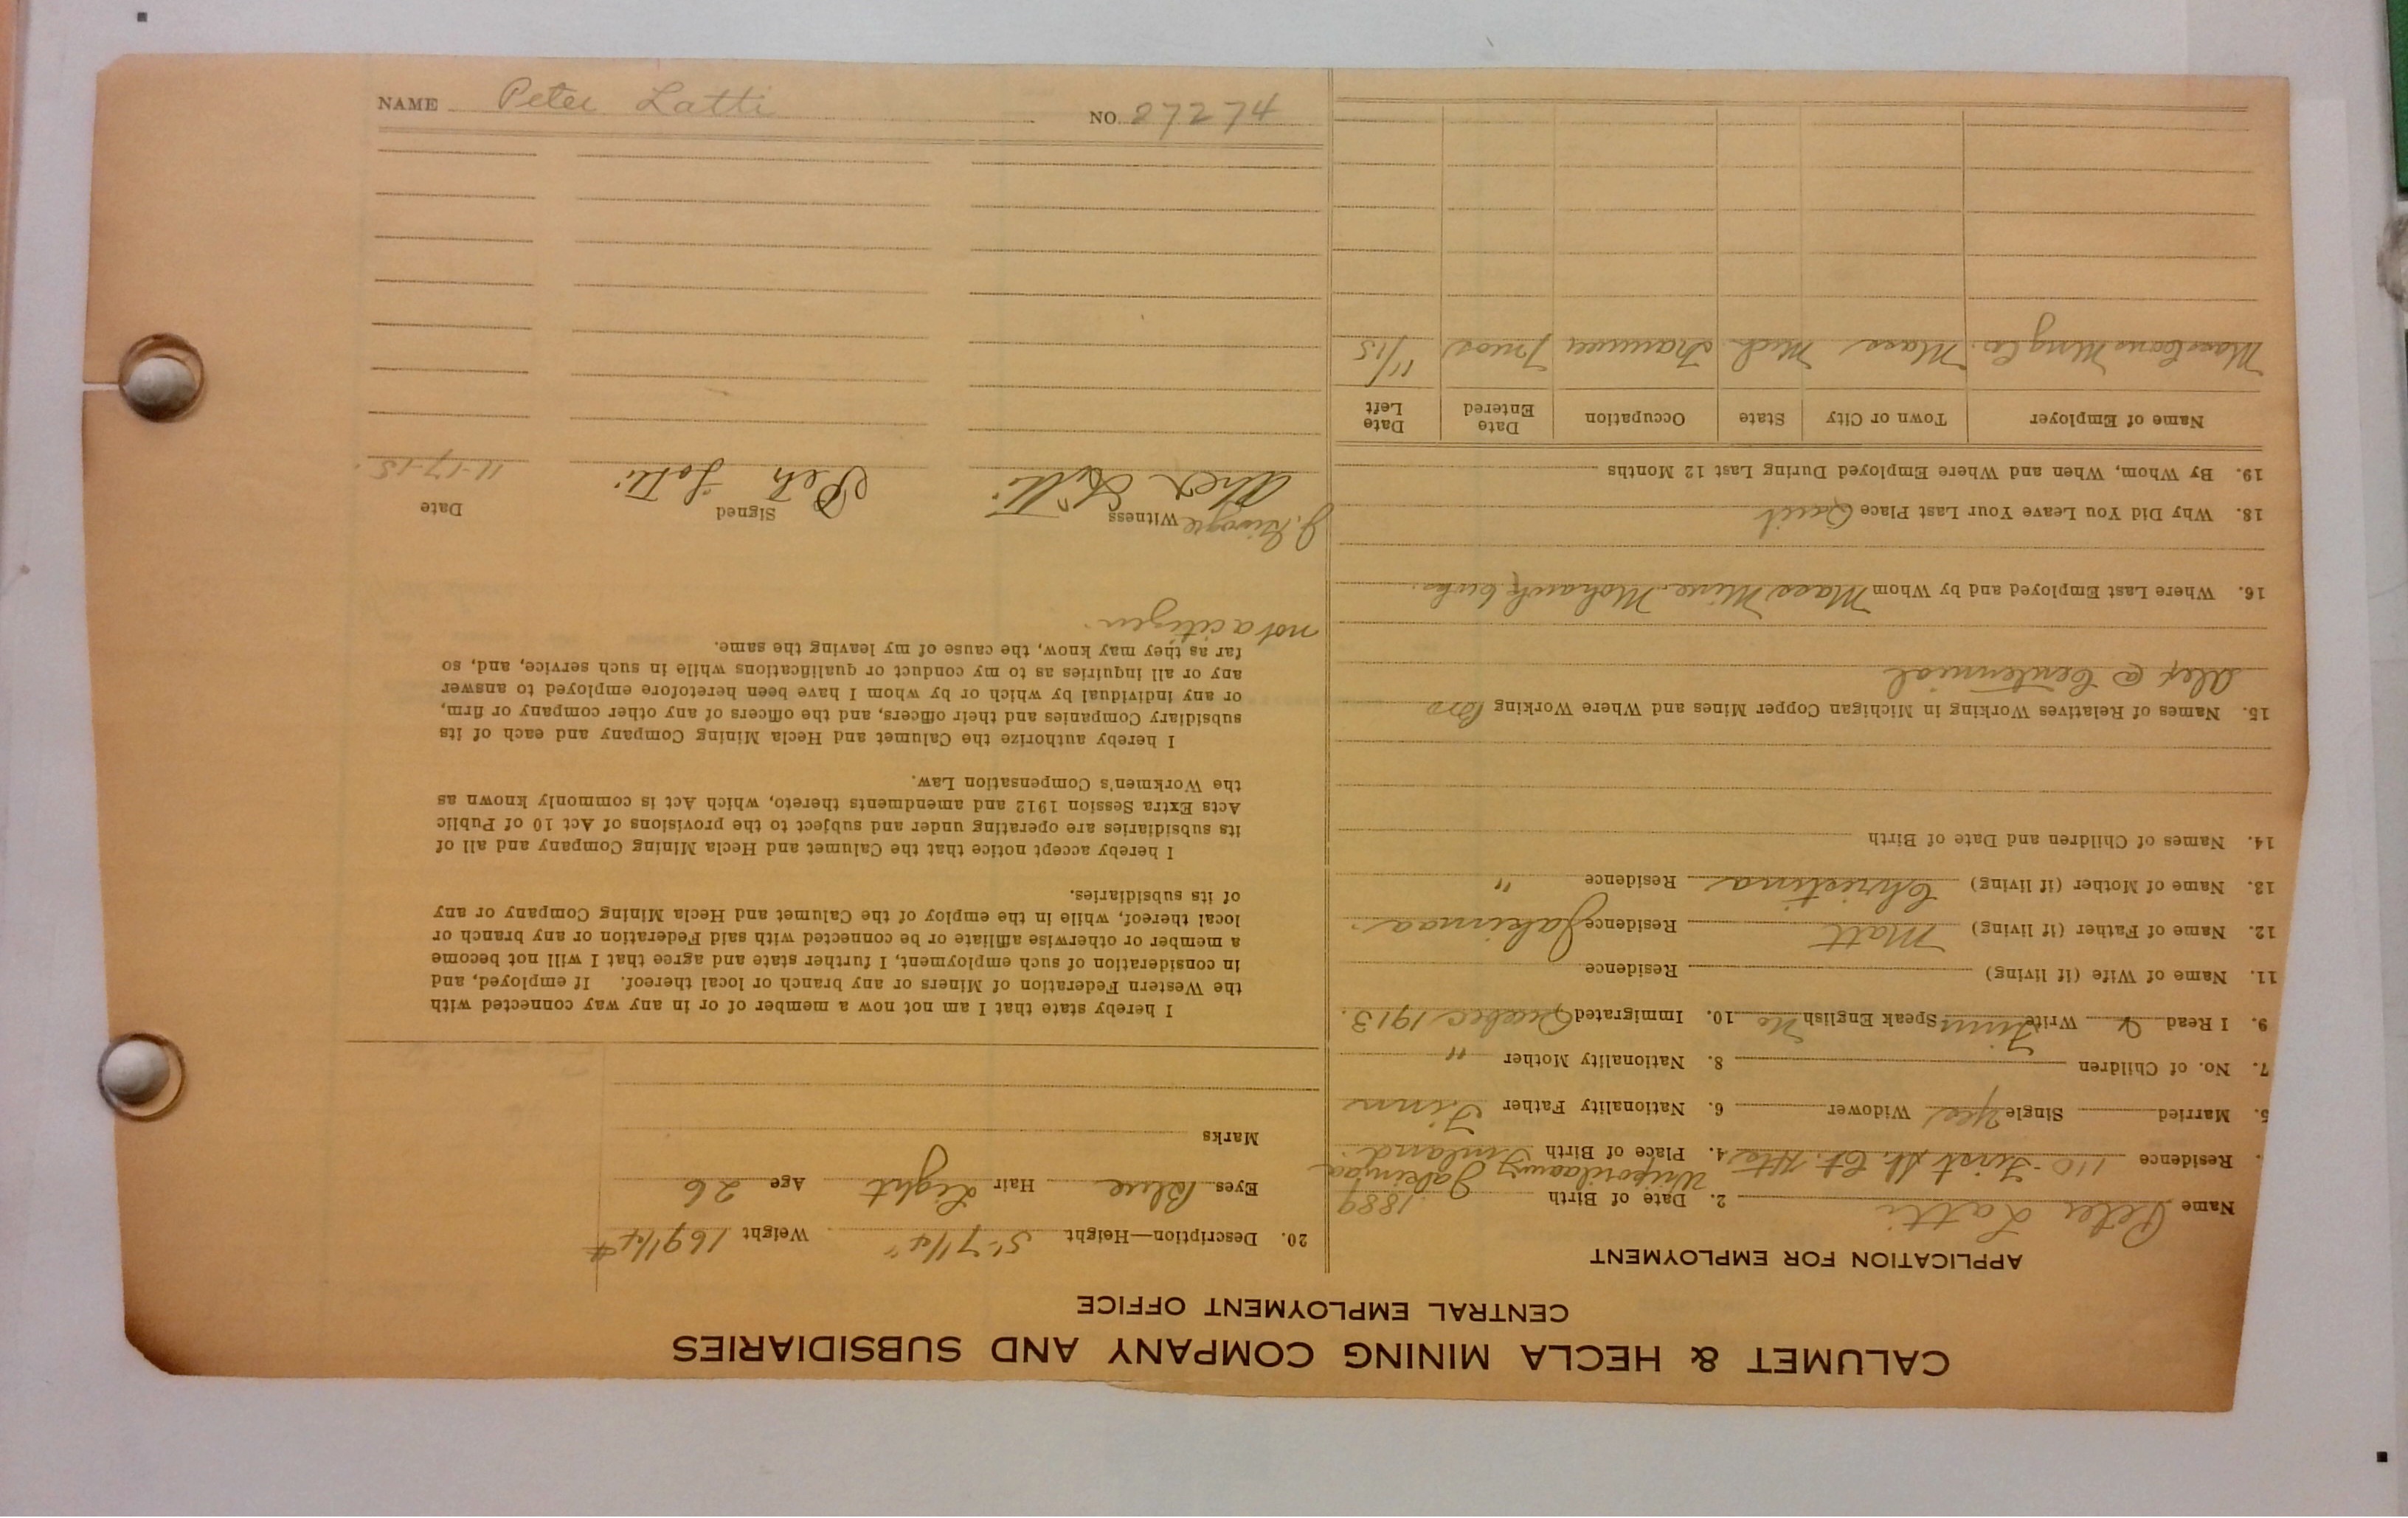 CALUMET & HECLA MINING COMPANY AND SUBSIDIARIES
CENTRAL EMPLOYMENT OFFICE
APPLICATION FOR EMPLOYMENT
Name Peter Latti 2. Date of Birth 1889
Residence 110 - First St. 4. Place of Birth Finland.
5. Married Single Yes Widower 6. Nationality Father Finn
7. No. of Children 8. Nationality Mother "
9. I Read & Write Finn Speak English No 10. Immigrated Quebec 1913.
11. Name of Wife (if living) Residence
12. Name of Father (if living) Matt Residence
13. Name of Mother (if living) Christina Residence "
14. Names of Children and Date of Birth
15. Names of Relatives Working in Michigan Copper Mines and Where Working
Alex @ Centennial
16. Where Last Employed and by Whom Mass Mine. Mohawk,
18. Why Did You Leave Your Last Place Quit
19. By Whom, When and Where Employed During Last 12 Months
Name of Employer Town or City State Occupation Date Entered Date Left
Mass Cons Mng Co. Mass Mich Trammer 7 mos 11/15
20. Description—Height 5'-7 1/4" Weight 169 1/4 #
Eyes Blue Hair Light Age 26
Marks
I hereby state that I am not now a member of or in any way connected with
the Western Federation of Miners or any branch or local thereof. If employed, and
in consideration of such employment, I further state and agree that I will not become
a member or otherwise affiliate or be connected with said Federation or any branch or
local thereof, while in the employ of the Calumet and Hecla Mining Company or any
of its subsidiaries.
I hereby accept notice that the Calumet and Hecla Mining Company and all of
its subsidiaries are operating under and subject to the provisions of Act 10 of Public
Acts Extra Session 1912 and amendments thereto, which Act is commonly known as
the Workmen's Compensation Law.
I hereby authorize the Calumet and Hecla Mining Company and each of its
subsidiary Companies and their officers, and the officers of any other company or firm,
or any individual by which or by whom I have been heretofore employed to answer
any or all inquiries as to my conduct or qualifications while in such service, and, so
far as they may know, the cause of my leaving the same.
not a citizen.
Witness Signed Date
11-17-15.
NAME Peter Latti NO. 27274